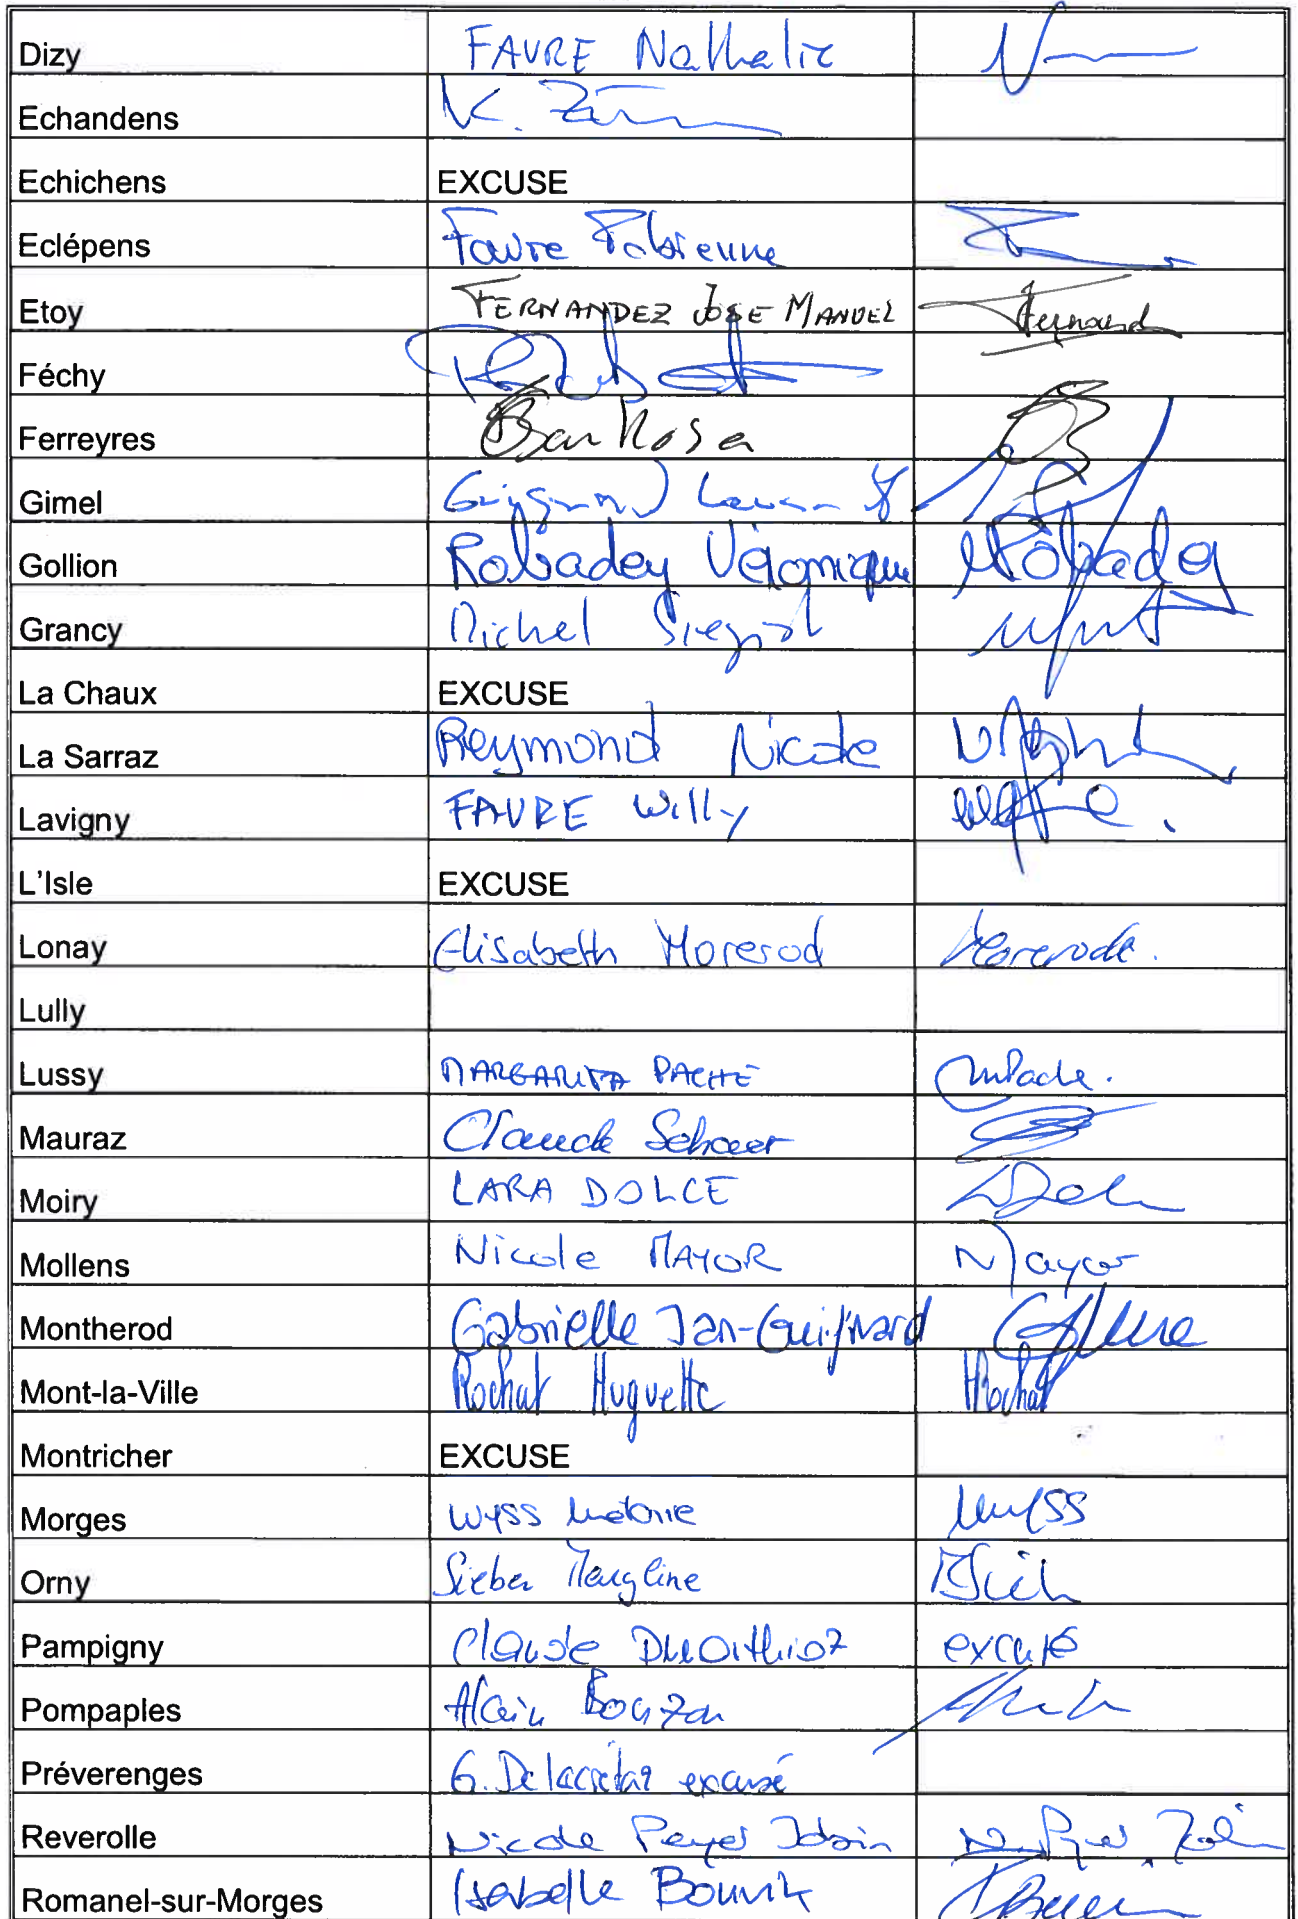 Dizy FAVRE Nathalie
Echandens K.
Echichens EXCUSE
Eclépens Favre Fabienne
Etoy FERNANDEZ JOSE MANUEL Fernand
Féchy
Ferreyres
Gimel
Gollion Robadey Véronique Robadey
Grancy Michel
La Chaux EXCUSE
La Sarraz Reymond Nicole
Lavigny FAVRE Willy
L'Isle EXCUSE
Lonay Elisabeth Morerod Morerod
Lully
Lussy MARGARITA PACHE mPache.
Mauraz Claude Schaer
Moiry LARA DOLCE
Mollens Nicole MAYOR NMayor
Montherod Gabrielle Jan-Guignard
Mont-la-Ville Rochat Huguette HRochat
Montricher EXCUSE
Morges Wyss Mélanie MWyss
Orny Sieber
Pampigny Claude excusé
Pompaples Alain
Préverenges G. Delacrétaz excusé
Reverolle Nicole
Romanel-sur-Morges Isabelle